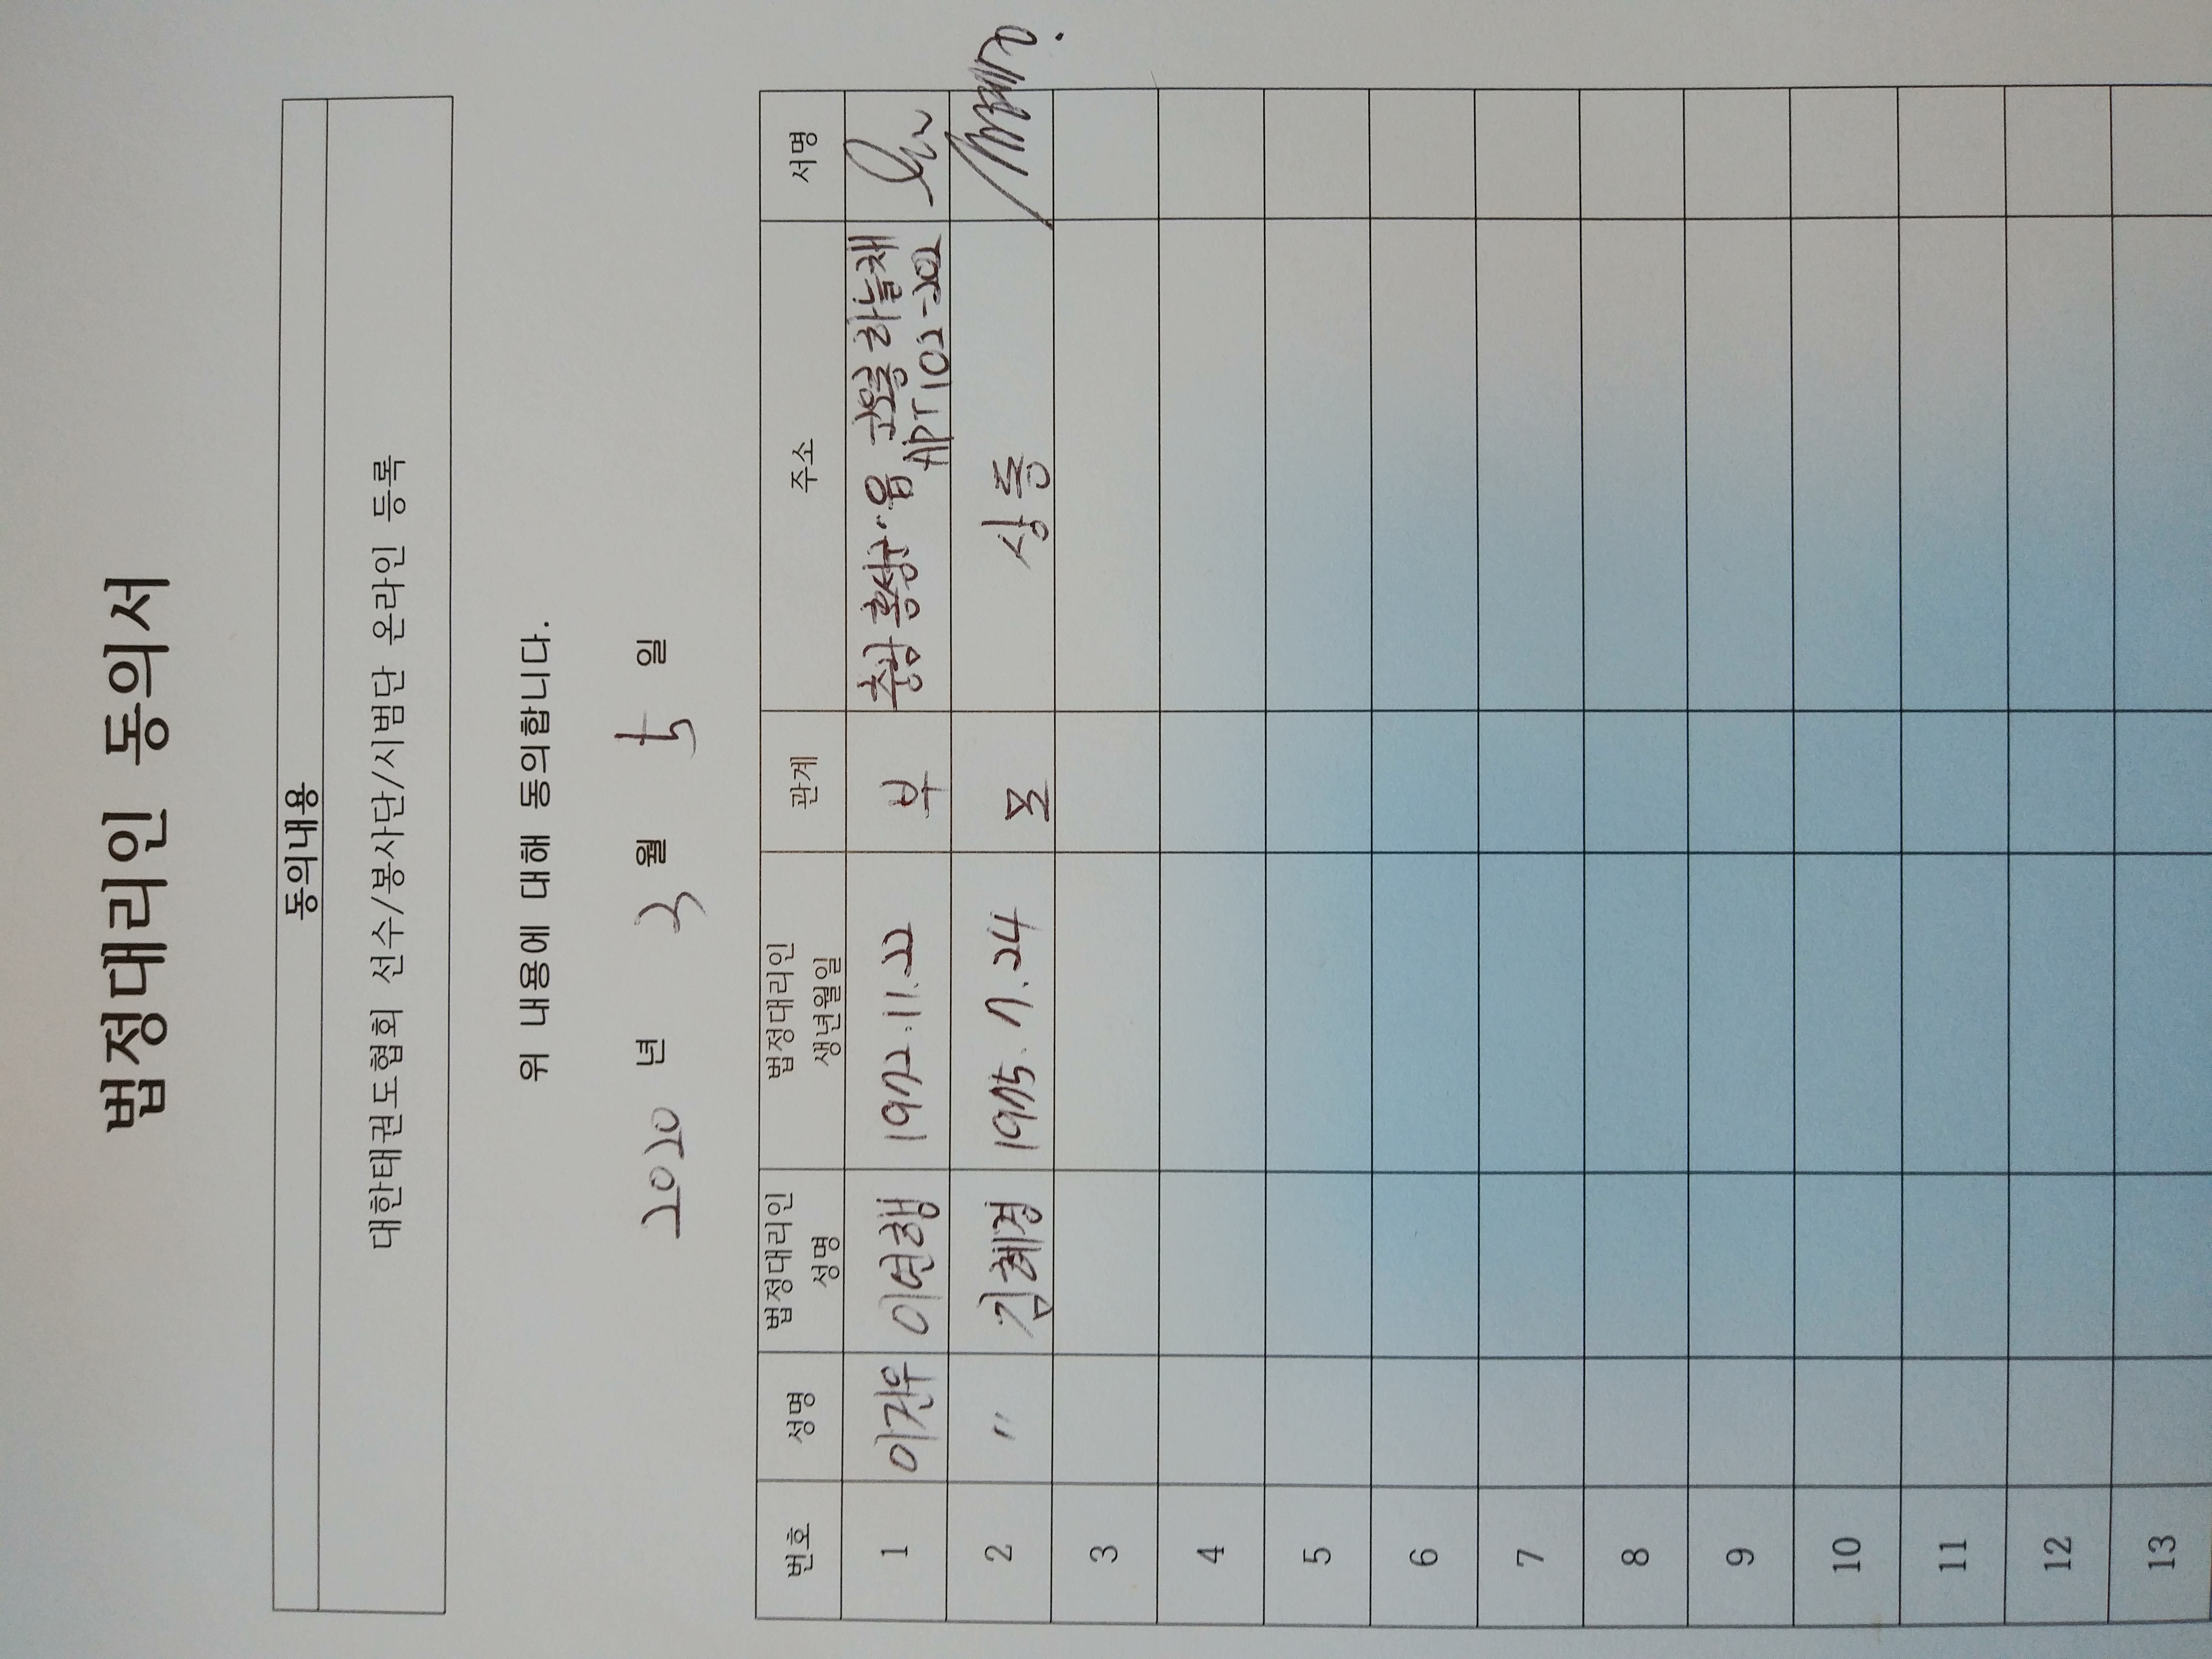 법정대리인 동의서
동의내용
대한태권도협회 선수/봉사단/시범단 온라인 등록
위 내용에 대해 동의합니다.
2020 년 3 월 5 일
번호 성명 법정대리인 성명 법정대리인 생년월일 관계 주소 서명
1 이건우 이연행 1972.11.22 부 충남 홍성군 읍 코오롱하늘채
APT 102-202
2 〃 김혜경 1975. 7. 24 모 상동
3
4
5
6
7
8
9
10
11
12
13